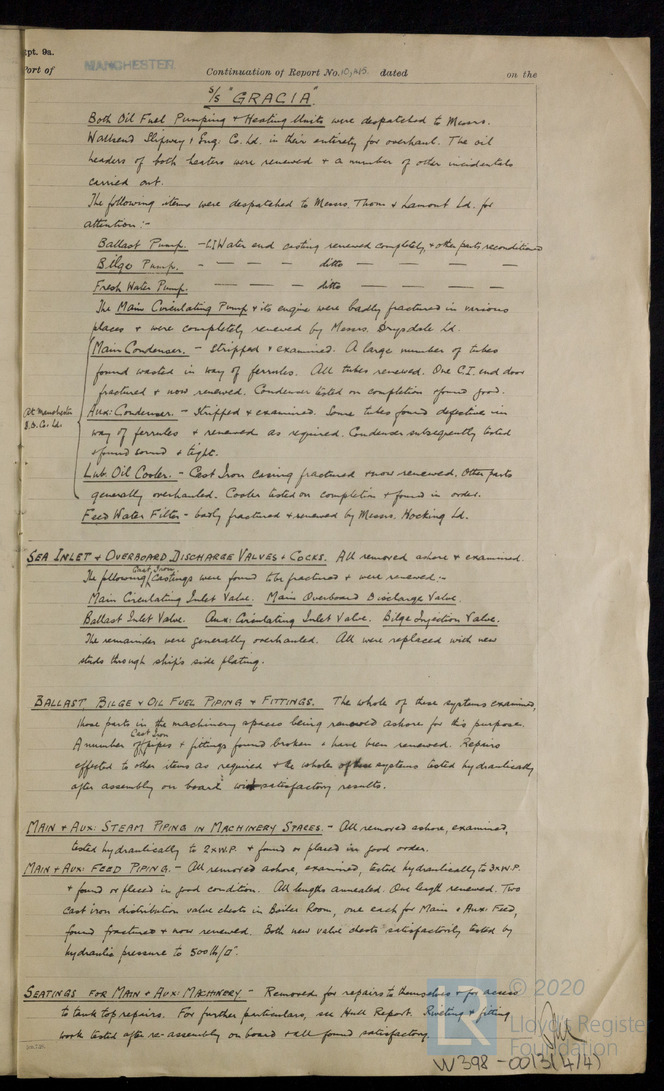 Rpt. 9a.
Port of MANCHESTER Continuation of Report No. 10,415. dated on the
S/S "GRACIA".
Both Oil Fuel Pumping & Heating Units were despatched to Messrs.
Wallsend Slipway & Eng: Co. Ld. in their entirety for overhaul. The oil
headers of both heaters were renewed & a number of other incidentals
carried out.
The following items were despatched to Messrs. Thom & Lamont Ld. for
attention:-
Ballast Pump. - C.I. Water end casting renewed completely, & other parts reconditioned
Bilge Pump. - - - ditto - - - -
Fresh Water Pump. - - - ditto - - - -
The Main Circulating Pump & its engine were badly fractured in various
places & were completely renewed by Messrs. Drysdale Ld.
Main Condenser. - Stripped & examined. A large number of tubes
found wasted in way of ferrules. All tubes renewed. One C.I. end door
fractured & now renewed. Condenser tested on completion & found good.
At Manchester
D.D. Co. Ld.
Aux: Condenser. - Stripped & examined. Some tubes found defective in
way of ferrules & renewed as required. Condenser subsequently tested
& found sound & tight.
Lub. Oil Cooler. - Cast Iron casing fractured & now renewed. Other parts
generally overhauled. Cooler tested on completion & found in order.
Feed Water Filter - badly fractured & renewed by Messrs. Hocking Ld.
SEA INLET & OVERBOARD DISCHARGE VALVES & COCKS. All removed ashore & examined.
The following Cast Iron Castings were found to be fractured & were renewed:-
Main Circulating Inlet Valve. Main Overboard Discharge Valve.
Ballast Inlet Valve. Aux: Circulating Inlet Valve. Bilge Injection Valve.
The remainder were generally overhauled. All were replaced with new
studs through ship's side plating.
BALLAST, BILGE & OIL FUEL PIPING & FITTINGS. The whole of these systems examined,
those parts in the machinery spaces being removed ashore for this purpose.
A number of Cast Iron pipes & fittings found broken & have been renewed. Repairs
effected to other items as required & the whole of these systems tested hydraulically
after assembly on board with satisfactory results.
MAIN & AUX: STEAM PIPING IN MACHINERY SPACES. - All removed ashore, examined,
tested hydraulically to 2xW.P. & found or placed in good order.
MAIN & AUX: FEED PIPING. - All removed ashore, examined, tested hydraulically to 3xW.P.
& found or placed in good condition. All lengths annealed. One length renewed. Two
cast iron distribution valve chests in Boiler Room, one each for Main & Aux: Feed,
found fractured & now renewed. Both new valve chests satisfactorily tested by
hydraulic pressure to 500 lb/□".
SEATINGS FOR MAIN & AUX: MACHINERY - Removed for repairs to themselves & for access
to tank top repairs. For further particulars, see Hull Report. Riveting & fitting
work tested after re-assembly on board & all found satisfactory.
© 2020
LR
Lloyd's Register
Foundation
W398-0013(4/4)